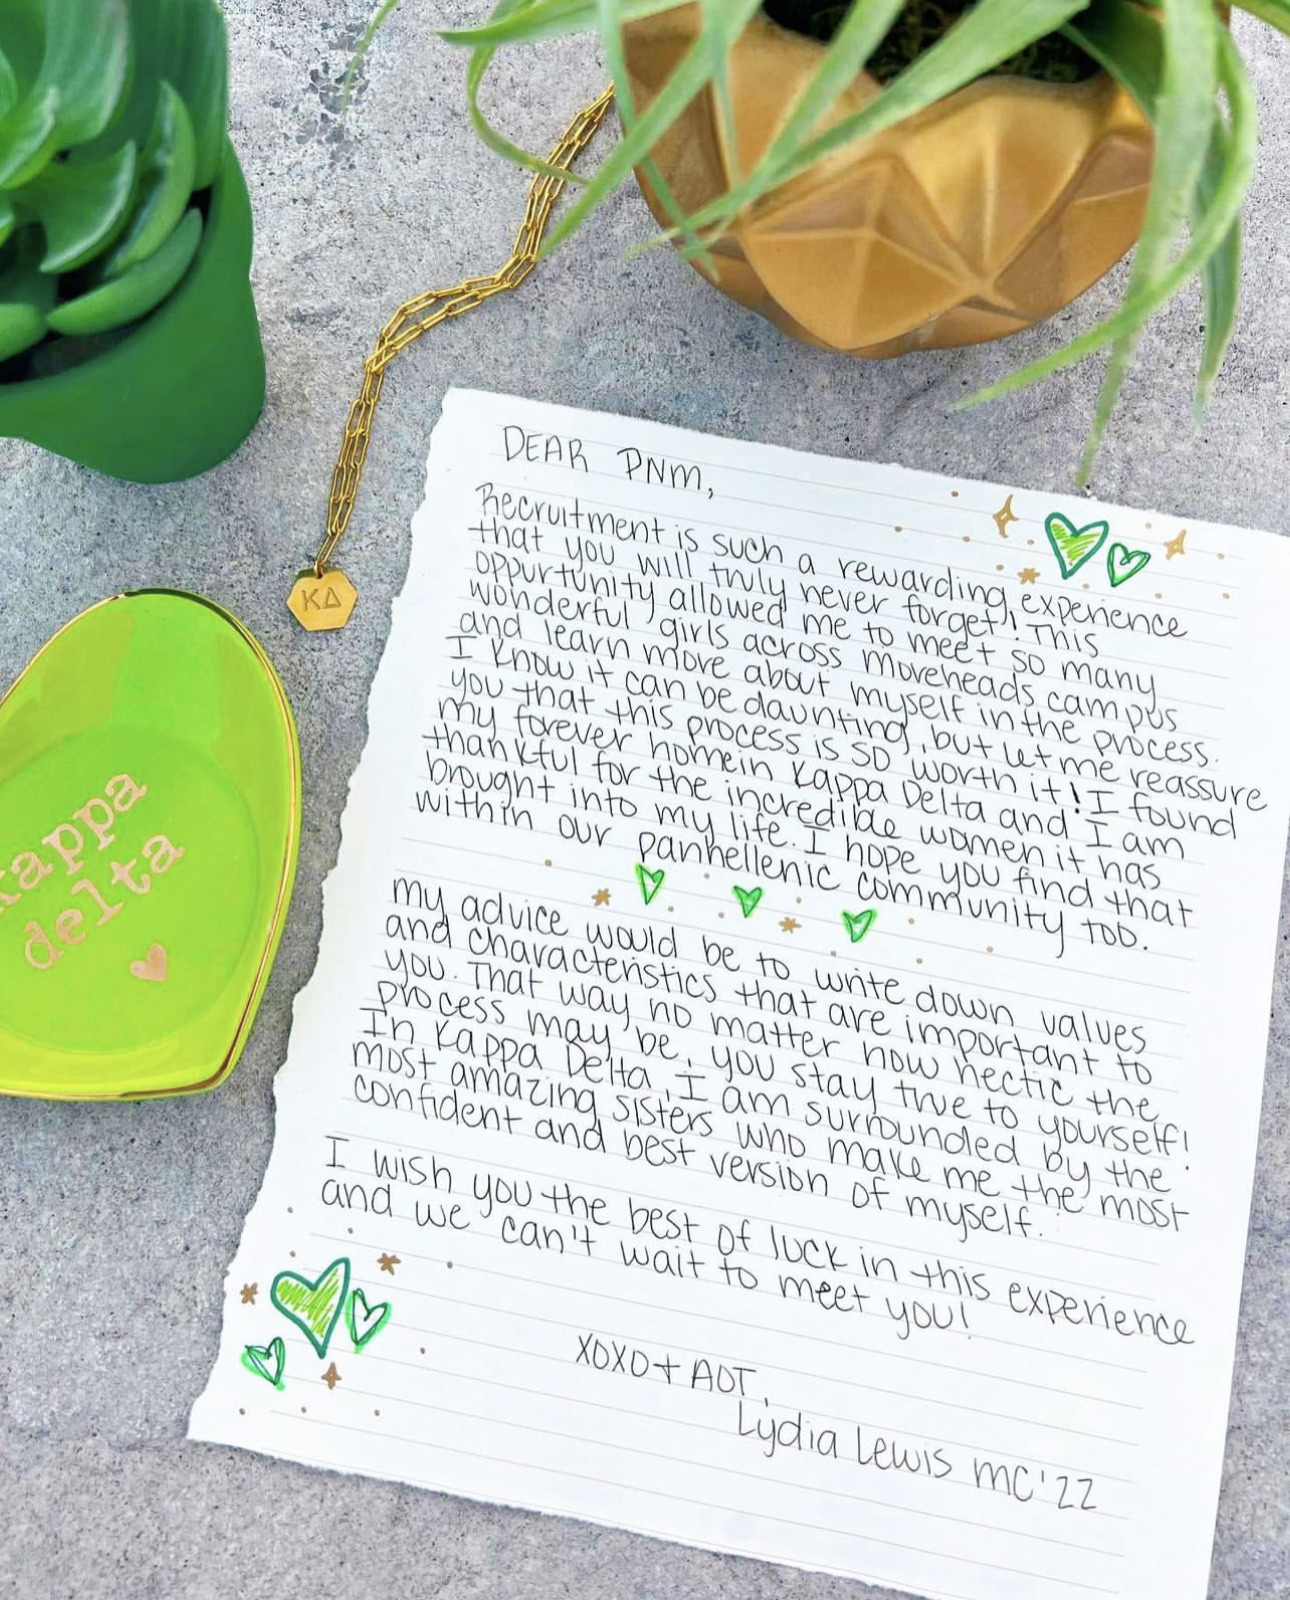 KΔ
kappa
delta
DEAR PNM,
Recruitment is such a rewarding experience
that you will truly never forget! This
oppurtunity allowed me to meet so many
wonderful girls across moreheads campus
and learn more about myself in the process.
I know it can be daunting, but let me reassure
you that this process is so worth it! I found
my forever home in Kappa Delta and I am
thankful for the incredible women it has
brought into my life. I hope you find that
within our panhellenic community too.
my advice would be to write down values
and characteristics that are important to
you. That way no matter how hectic the
process may be, you stay true to yourself!
In Kappa Delta, I am surrounded by the
most amazing sisters who make me the most
confident and best version of myself.
I wish you the best of luck in this experience
and we can't wait to meet you!
XOXO + AOT,
Lydia Lewis MC'22